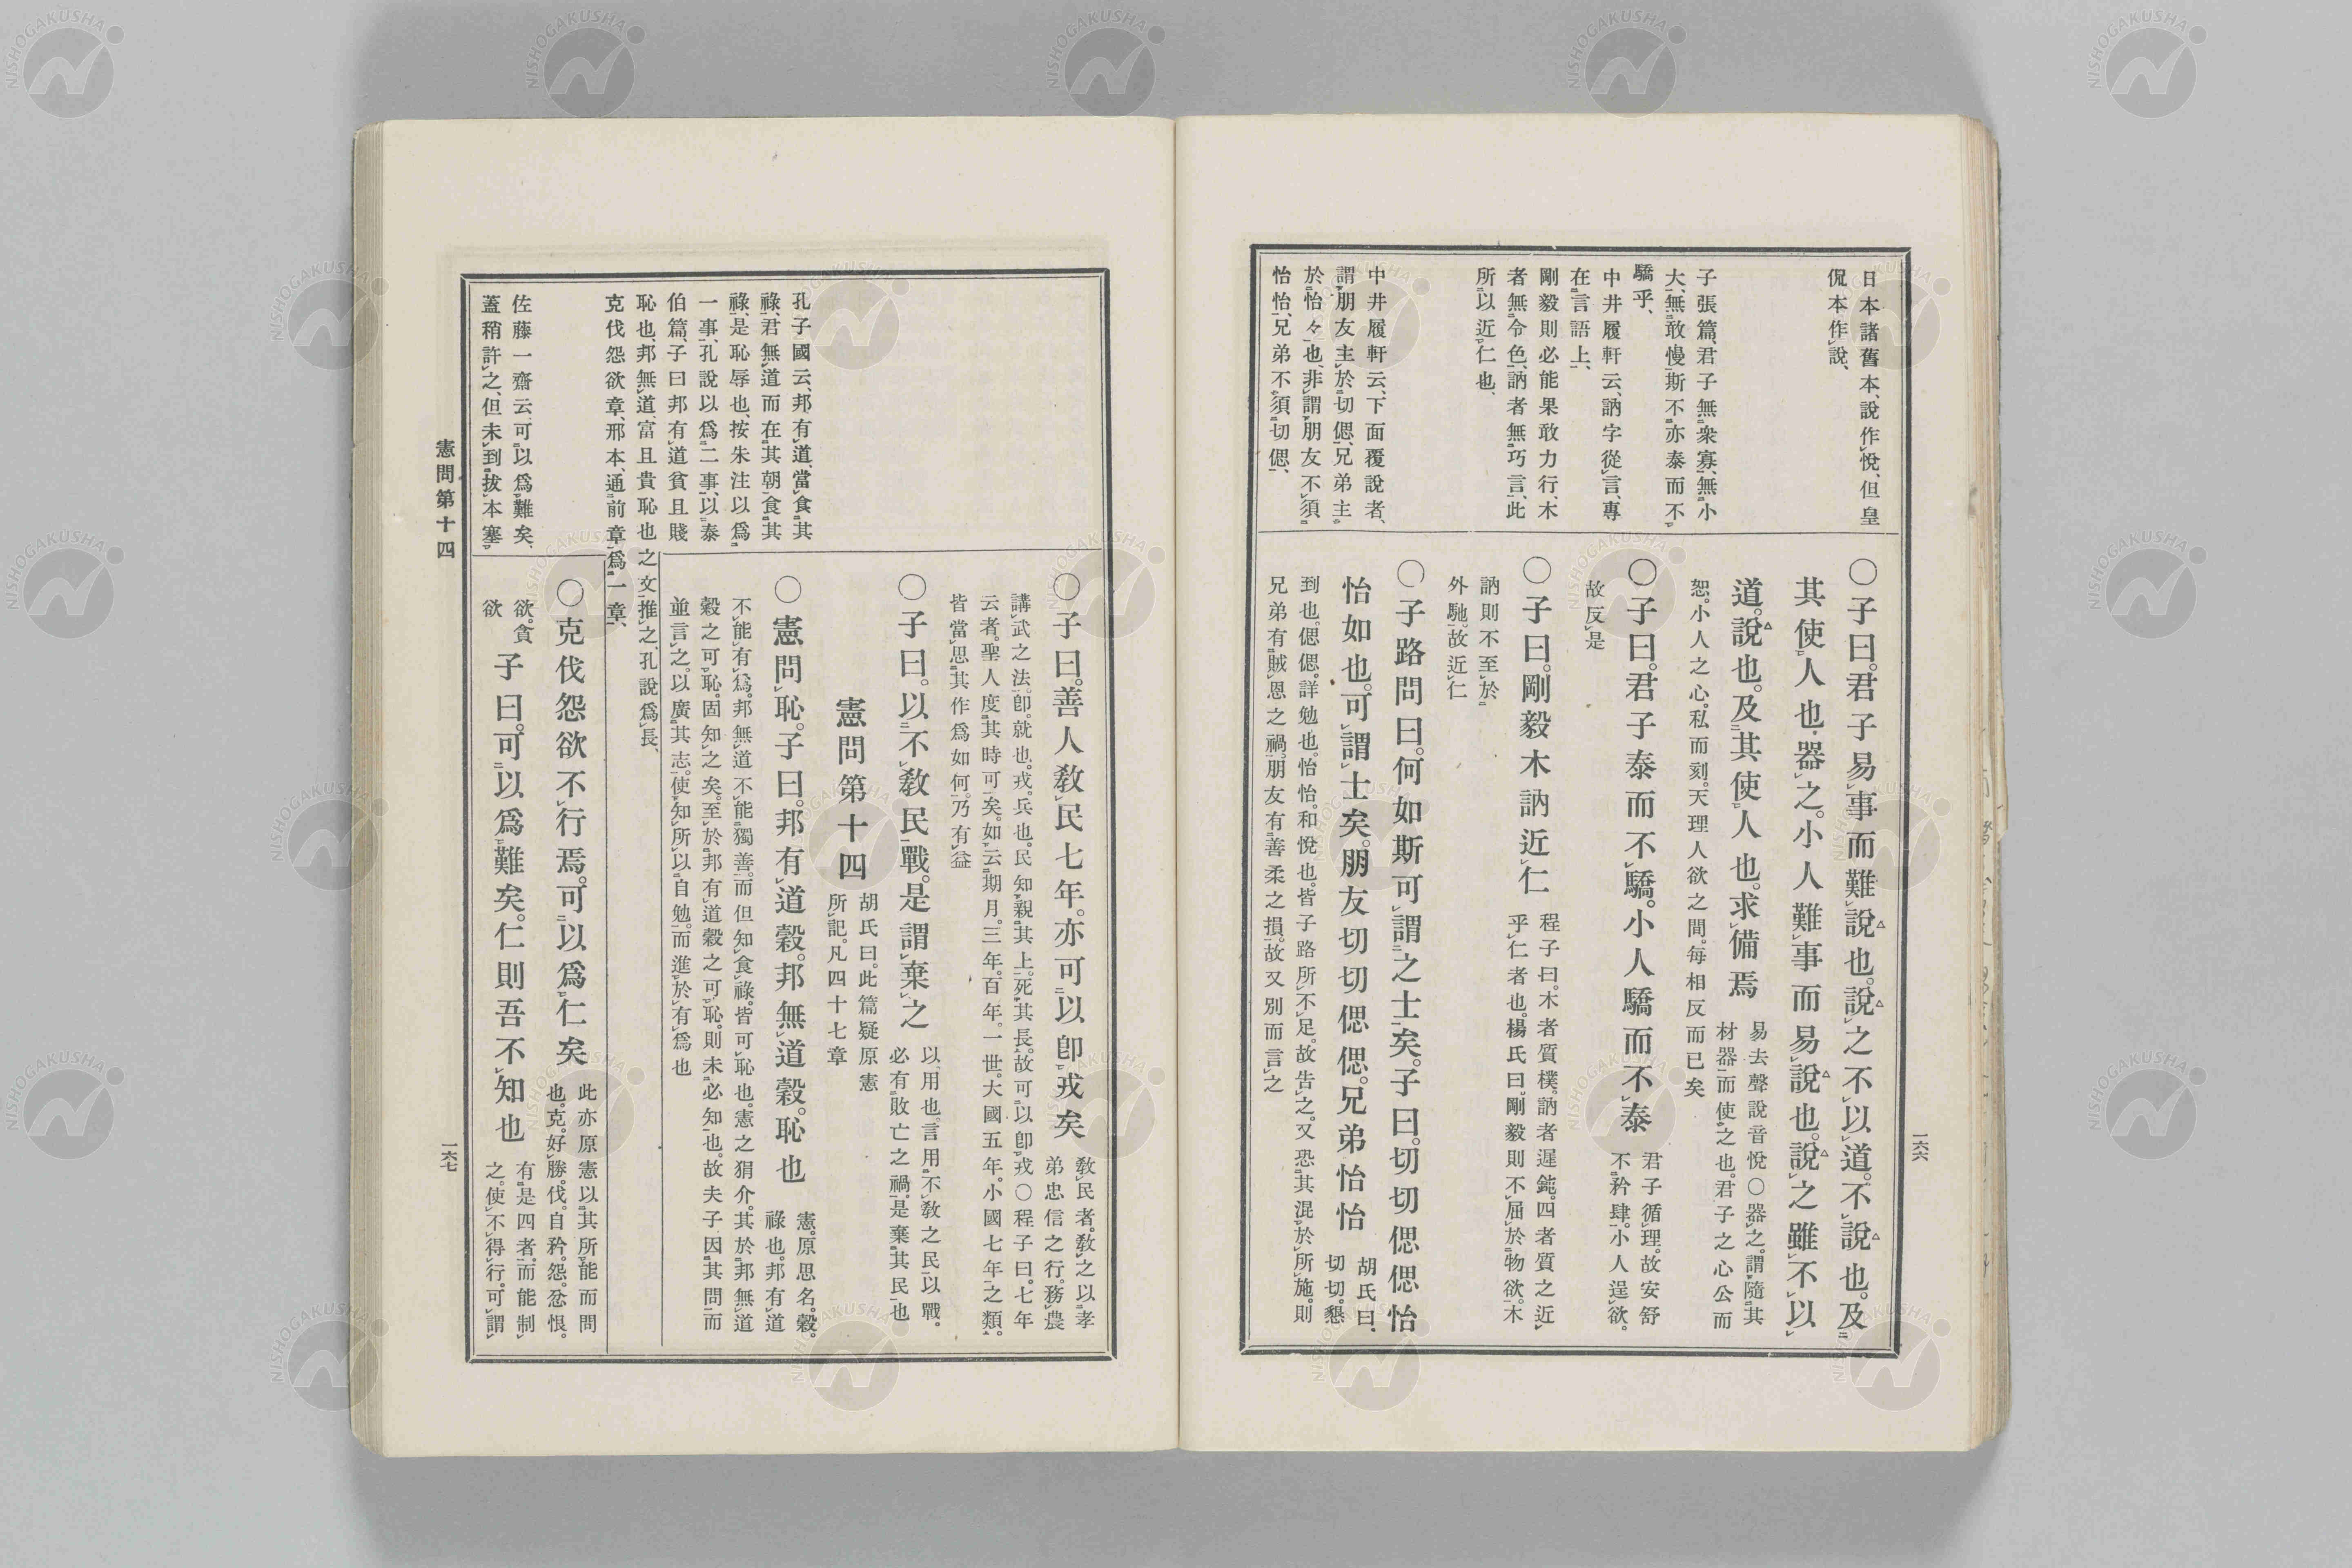 日本諸舊本、說作悅、但皇
侃本作說、
子張篇、君子無衆寡、無小
大、無敢慢、斯不亦泰而不
驕乎、
中井履軒云、訥字從言、專
在言語上、
剛毅則必能果敢力行、木
者無令色、訥者無巧言、此
所以近仁也、
中井履軒云、下面覆說者、
謂朋友主於切偲、兄弟主
於怡々也、非謂朋友不須
怡怡、兄弟不須切偲、
〇子曰。君子易事而難說也。說之不以道。不說也。及
其使人也、器之。小人難事而易說也。說之雖不以
道。說也。及其使人也。求備焉
易去聲說音悅〇器之。謂隨其
材器而使之也。君子之心公而
恕。小人之心。私而刻。天理人欲之間。每相反而已矣
〇子曰。君子泰而不驕。小人驕而不泰
君子循理。故安舒
不矜肆。小人逞欲。
故反是
〇子曰。剛毅木訥近仁
程子曰。木者質樸。訥者遲鈍。四者質之近
乎仁者也。楊氏曰。剛毅則不屈於物欲。木
訥則不至於
外馳。故近仁
〇子路問曰。何如斯可謂之士矣。子曰。切切偲偲怡
怡如也。可謂士矣。朋友切切偲偲。兄弟怡怡
胡氏曰、
切切。懇
到也。偲偲。詳勉也。怡怡。和悅也。皆子路所不足。故告之。又恐其混於所施。則
兄弟有賊恩之禍。朋友有善柔之損。故又別而言之
一六六
〇子曰。善人敎民七年。亦可以卽戎矣
敎民者。敎之以孝
弟忠信之行。務農
講武之法。卽。就也。戎。兵也。民知親其上。死其長。故可以卽戎〇程子曰。七年
云者。聖人度其時可矣。如云期月。三年。百年。一世。大國五年。小國七年之類。
皆當思其作爲如何。乃有益
〇子曰。以不敎民戰。是謂棄之
以、用也、言用不敎之民以戰。
必有敗亡之禍。是棄其民也
憲問第十四
胡氏曰。此篇疑原憲
所記。凡四十七章
孔子國云、邦有道、當食其
祿、君無道而在其朝食其
祿、是恥辱也、按朱注以爲
一事、孔說以爲二事、以泰
伯篇、子曰邦有道貧且賤
恥也、邦無道、富且貴恥也之文推之、孔說爲長、
克伐怨欲章、邢本、通前章爲一章、
佐藤一齋云、可以爲難矣、
蓋稍許之、但未到拔本塞
〇憲問恥。子曰。邦有道穀。邦無道穀。恥也
憲。原思名。穀。
祿也。邦有道
不能有爲。邦無道不能獨善。而但知食祿。皆可恥也。憲之狷介。其於邦無道
穀之可恥。固知之矣。至於邦有道穀之可恥。則未必知也。故夫子因其問而
並言之。以廣其志。使知所以自勉。而進於有爲也
〇克伐怨欲不行焉。可以爲仁矣
此亦原憲以其所能而問
也。克。好勝。伐。自矜。怨。忿恨。
欲。貪
欲
子曰。可以爲難矣。仁則吾不知也
有是四者。而能制
之。使不得行。可謂
憲問第十四
一六七
NISHOGAKUSHA